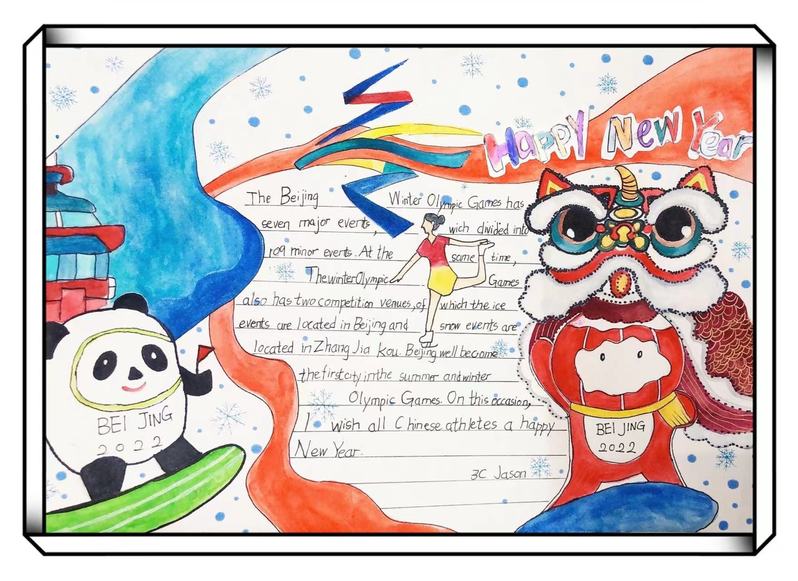 Happy New Year
The Beijing Winter Olympic Games has
seven major events, wich divided into
109 minor events. At the same time,
The winter Olympic Games
also has two competition venues, of which the ice
events are located in Beijing and snow events are
located in Zhang Jia kou. Beijing well become
the first city in the summer and winter
Olympic Games. On this occasion,
I wish all Chinese athletes a happy
New Year.
3C Jason
BEI JING
2022
BEI JING
2022